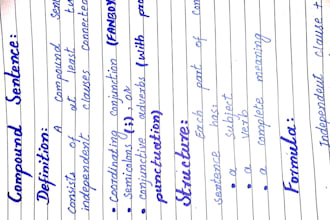 Compound Sentence:
Definition:
A compound
consists of at least
independent clauses connected
• Coordinating conjunction (FANBOY
• Semicolons (;), or
• conjunctive adverbs (with
punctuation)
Structure:
Each part of
sentence has:
• a subject
• a verb
• a complete meaning
Formula:
Independent clause +